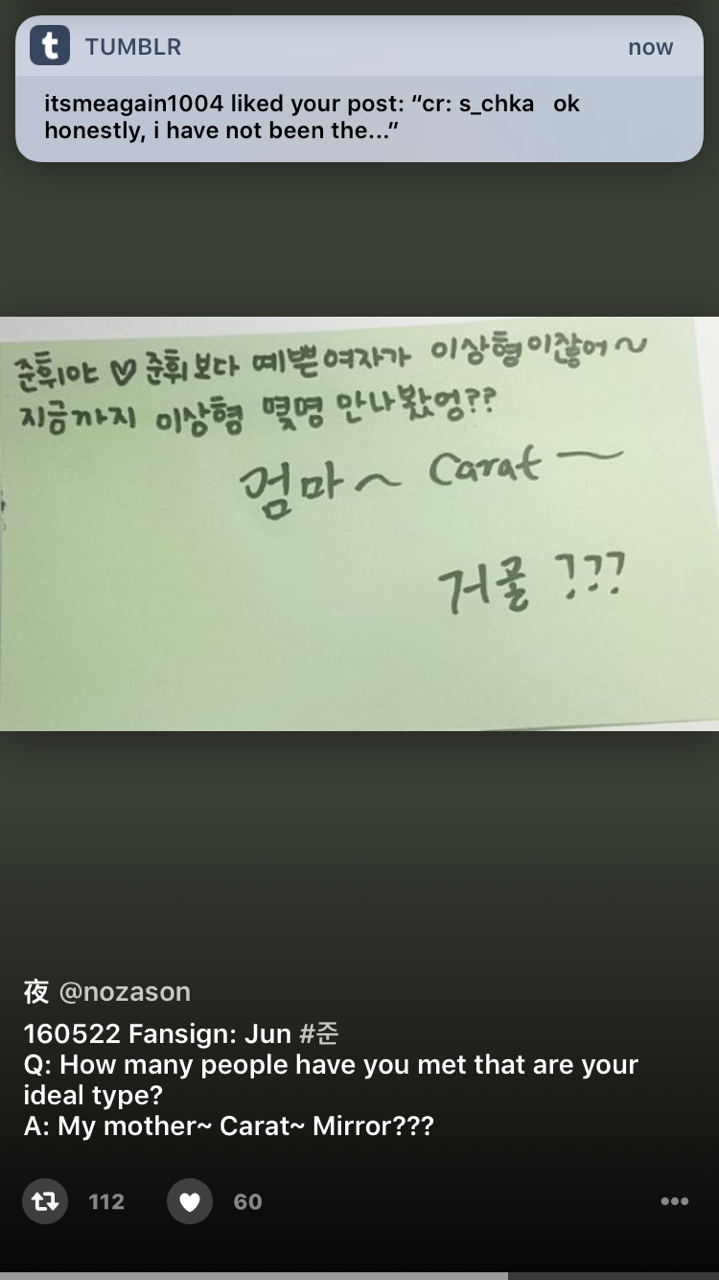 TUMBLR now
itsmeagain1004 liked your post: “cr: s_chka ok
honestly, i have not been the...”
준휘야 ♡ 준휘보다 예쁜여자가 이상형이잖어~
지금까지 이상형 몇명 만나봤엉??
엄마~ Carat ~
거울 ???
夜 @nozason
160522 Fansign: Jun #준
Q: How many people have you met that are your
ideal type?
A: My mother~ Carat~ Mirror???
112 60